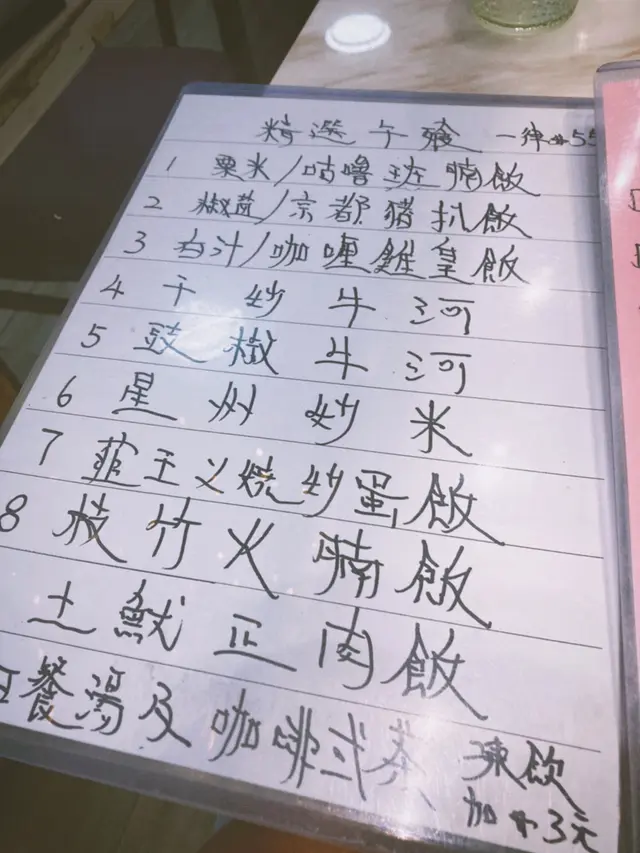 精選午餐 一律$55
1 粟米/咕嚕班腩飯
2 椒/京都猪扒飯
3 白汁/咖喱雞皇飯
4 干炒牛河
5 豉椒牛河
6 星州炒米
7 韮王义燒炒蛋飯
8 枝竹火腩飯
土魷正肉飯
餐湯及咖啡或茶 凍飲
加$3元